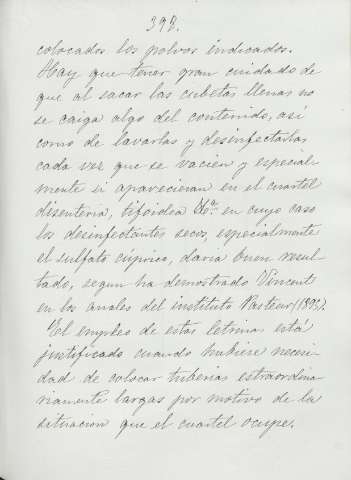 398.
colocados los polvos indicados.
Hay que tener gran cuidado de
que al sacar las cubetas llenas no
se caiga algo del contenido, así
como de lavarlas y desinfectarlas
cada vez que se vacien y especial-
mente si aparecieran en el cuartel
disenteria, tifoidea &ª en cuyo caso
los desinfectantes secos, especialmente
el sulfato cúprico, daria buen resul-
tado, segun ha demostrado Vincent
en los anales del instituto Pasteur (1895).
El empleo de estas letrinas está
justificado cuando hubiere necesi-
dad de colocar tuberias estraordina
riamente largas por motivo de la
situacion que el cuartel ocupe.